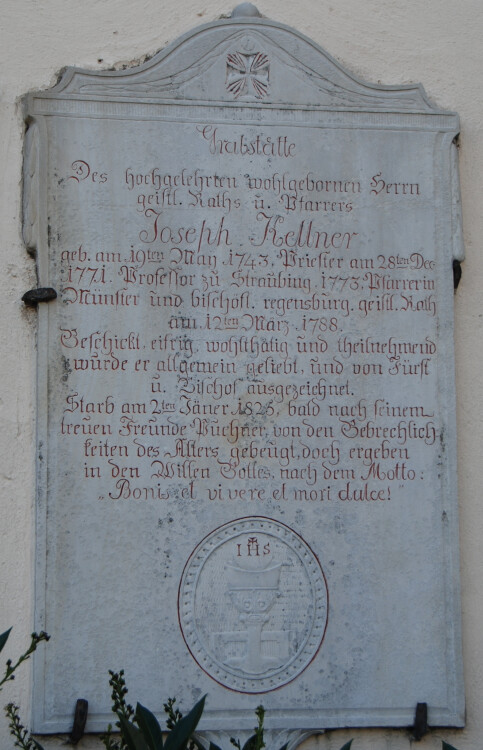 Grabstätte
Des hochgelehrten wohlgebornen Herrn
geistl. Raths u. Pfarrers
Joseph Kellner
geb. am 19ten May 1743. Priester am 28ten Dec
1771. Professor zu Straubing 1773. Pfarrer in
Münster und bischöfl. regensburg. geistl. Rath
am 12ten März 1788.
Geschickt, eifrig, wohlthätig und theilnehmend
wurde er allgemein geliebt, und von Fürst
u. Bischof ausgezeichnet.
Starb am 2ten Jäner 1825, bald nach seinem
treuen Freunde Puchner, von den Gebrechlich-
keiten des Alters gebeugt, doch ergeben
in den Willen Gottes, nach dem Motto:
„Bonis et vivere et mori dulce!"
IHS